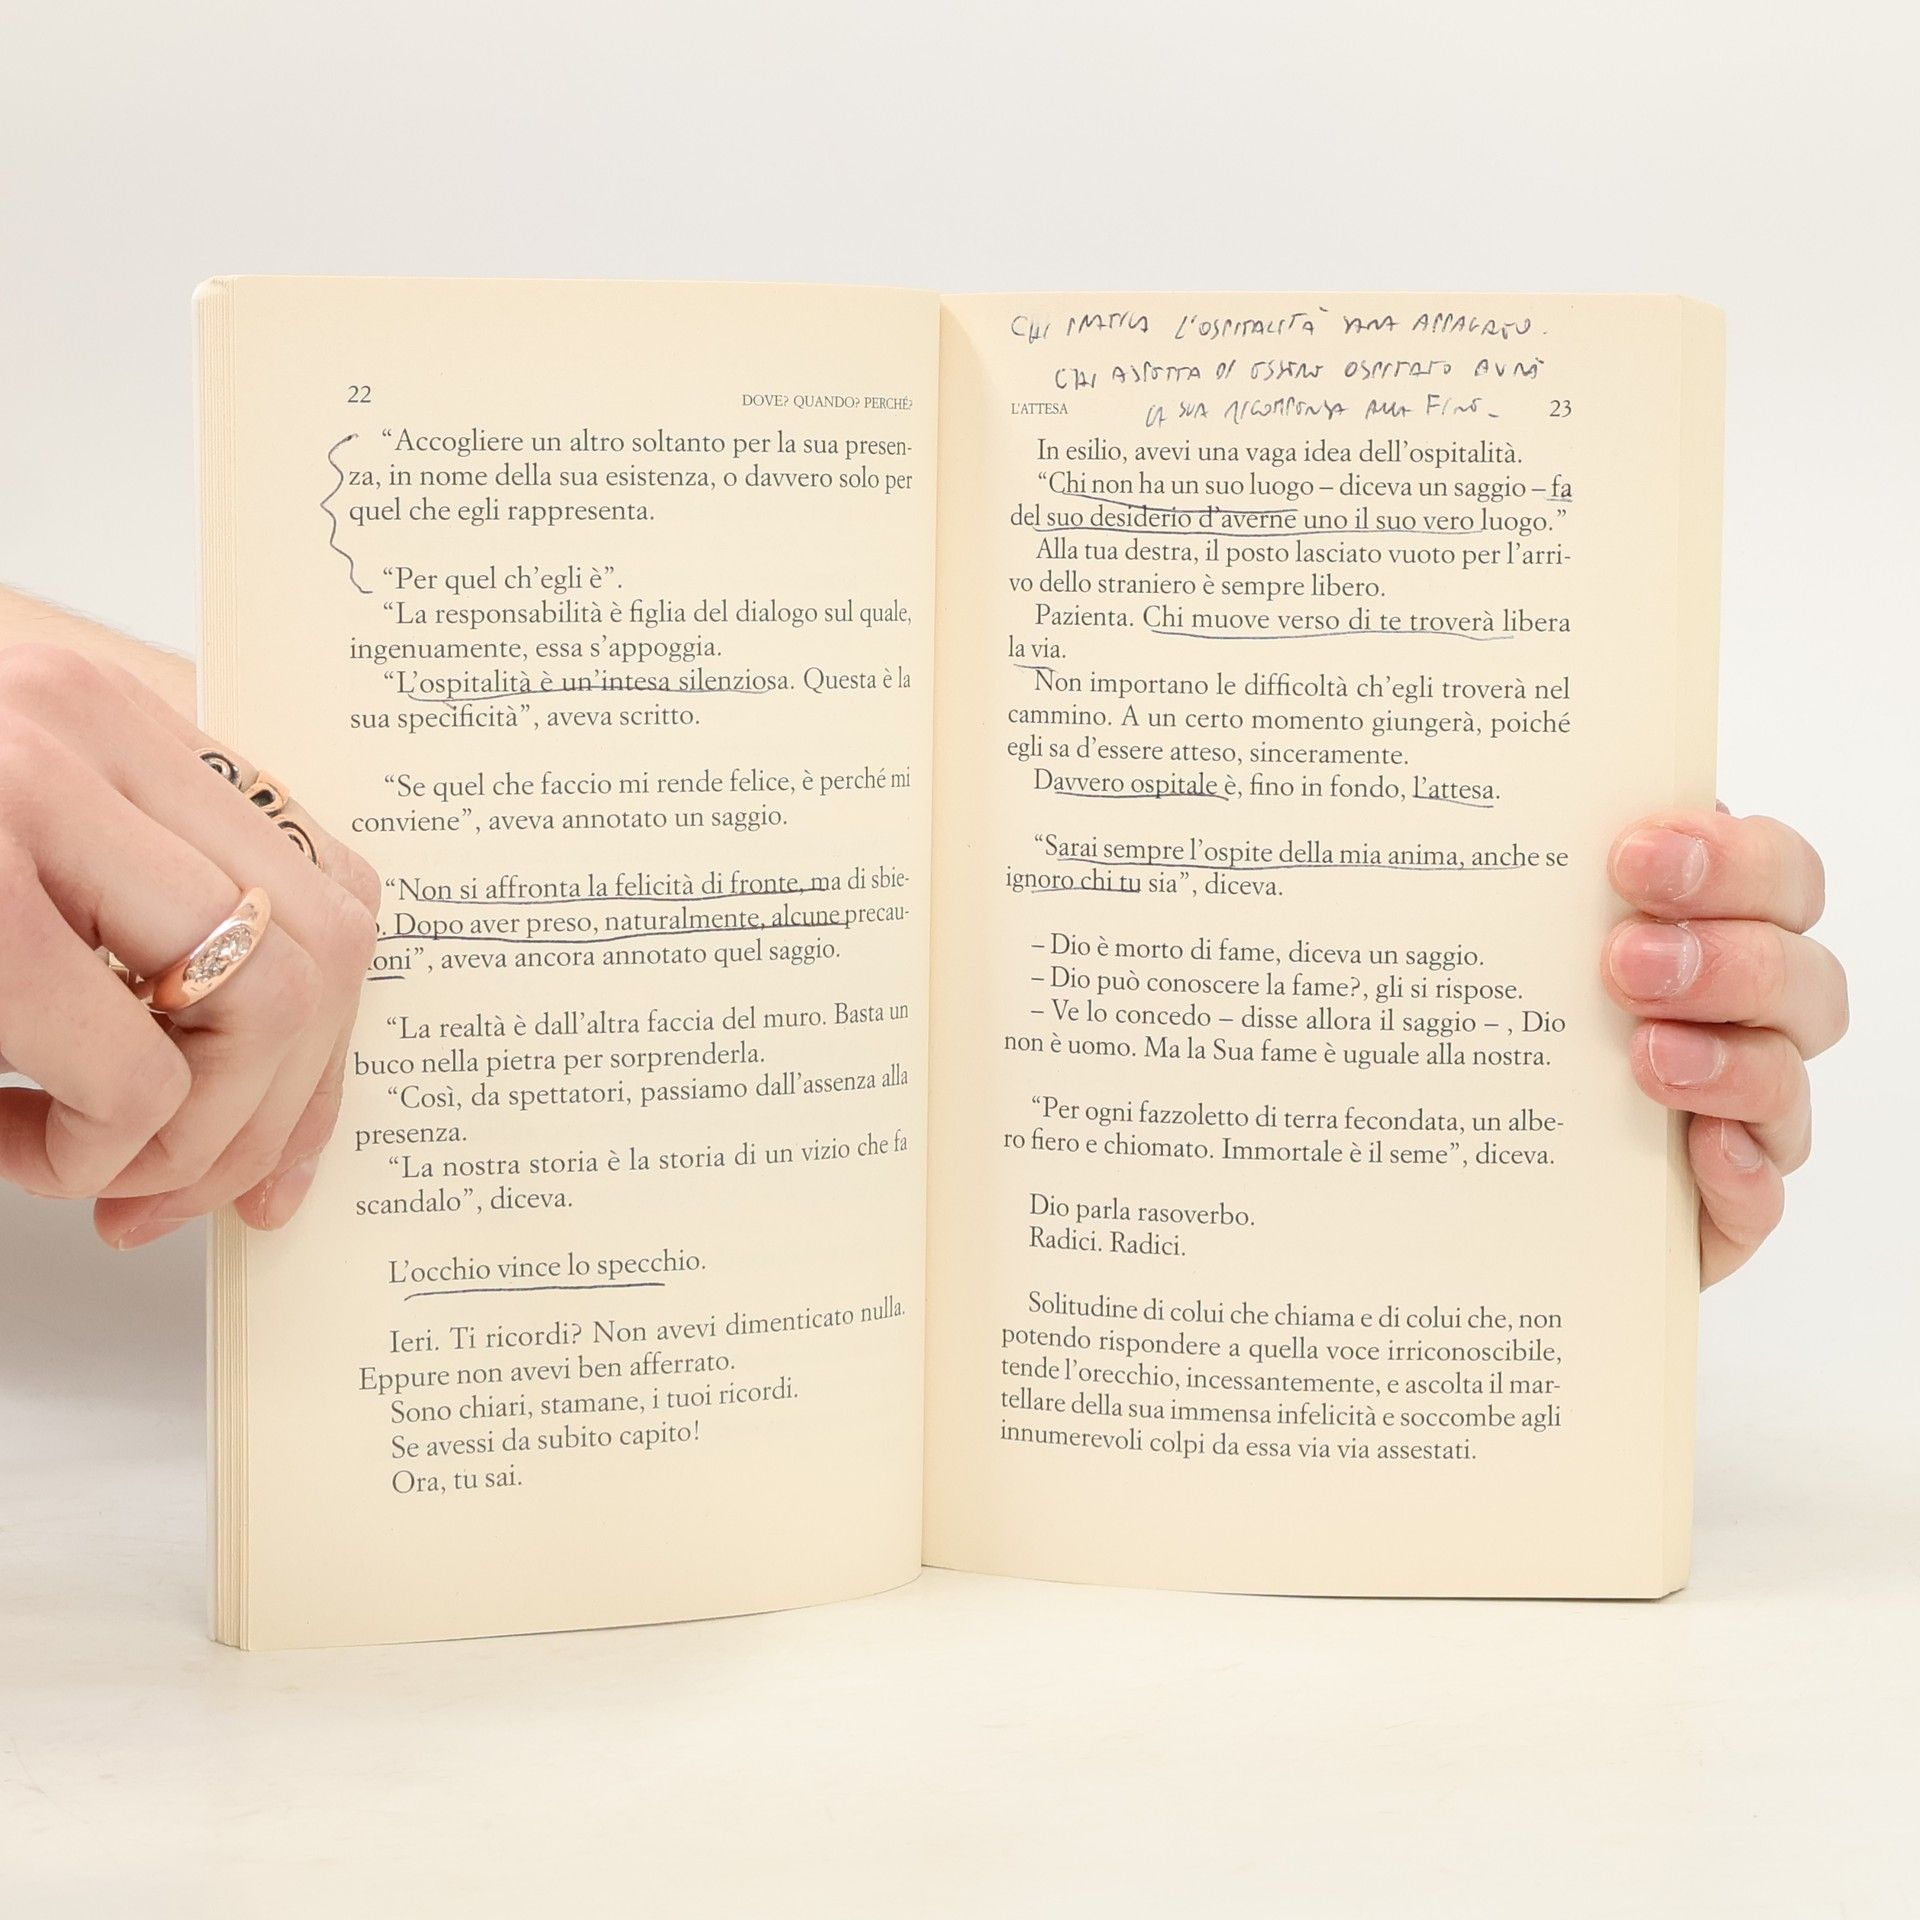 22
DOVE? QUANDO? PERCHÉ?
“Accogliere un altro soltanto per la sua presen-
za, in nome della sua esistenza, o davvero solo per
quel che egli rappresenta.
“Per quel ch’egli è”.
“La responsabilità è figlia del dialogo sul quale,
ingenuamente, essa s’appoggia.
“L’ospitalità è un’intesa silenziosa. Questa è la
sua specificità”, aveva scritto.
“Se quel che faccio mi rende felice, è perché mi
conviene”, aveva annotato un saggio.
“Non si affronta la felicità di fronte, ma di sbie-
. Dopo aver preso, naturalmente, alcune precau-
ioni”, aveva ancora annotato quel saggio.
“La realtà è dall’altra faccia del muro. Basta un
buco nella pietra per sorprenderla.
“Così, da spettatori, passiamo dall’assenza alla
presenza.
“La nostra storia è la storia di un vizio che fa
scandalo”, diceva.
L’occhio vince lo specchio.
Ieri. Ti ricordi? Non avevi dimenticato nulla.
Eppure non avevi ben afferrato.
Sono chiari, stamane, i tuoi ricordi.
Se avessi da subito capito!
Ora, tu sai.
CHI PRATICA L’OSPITALITÀ SARÀ APPAGATO.
CHI ASPETTA DI ESSERE OSPITATO AVRÀ
LA SUA RICOMPENSA ALLA FINE.
L’ATTESA
23
In esilio, avevi una vaga idea dell’ospitalità.
“Chi non ha un suo luogo – diceva un saggio – fa
del suo desiderio d’averne uno il suo vero luogo.”
Alla tua destra, il posto lasciato vuoto per l’arri-
vo dello straniero è sempre libero.
Pazienta. Chi muove verso di te troverà libera
la via.
Non importano le difficoltà ch’egli troverà nel
cammino. A un certo momento giungerà, poiché
egli sa d’essere atteso, sinceramente.
Davvero ospitale è, fino in fondo, l’attesa.
“Sarai sempre l’ospite della mia anima, anche se
ignoro chi tu sia”, diceva.
– Dio è morto di fame, diceva un saggio.
– Dio può conoscere la fame?, gli si rispose.
– Ve lo concedo – disse allora il saggio – , Dio
non è uomo. Ma la Sua fame è uguale alla nostra.
“Per ogni fazzoletto di terra fecondata, un albe-
ro fiero e chiomato. Immortale è il seme”, diceva.
Dio parla rasoverbo.
Radici. Radici.
Solitudine di colui che chiama e di colui che, non
potendo rispondere a quella voce irriconoscibile,
tende l’orecchio, incessantemente, e ascolta il mar-
tellare della sua immensa infelicità e soccombe agli
innumerevoli colpi da essa via via assestati.